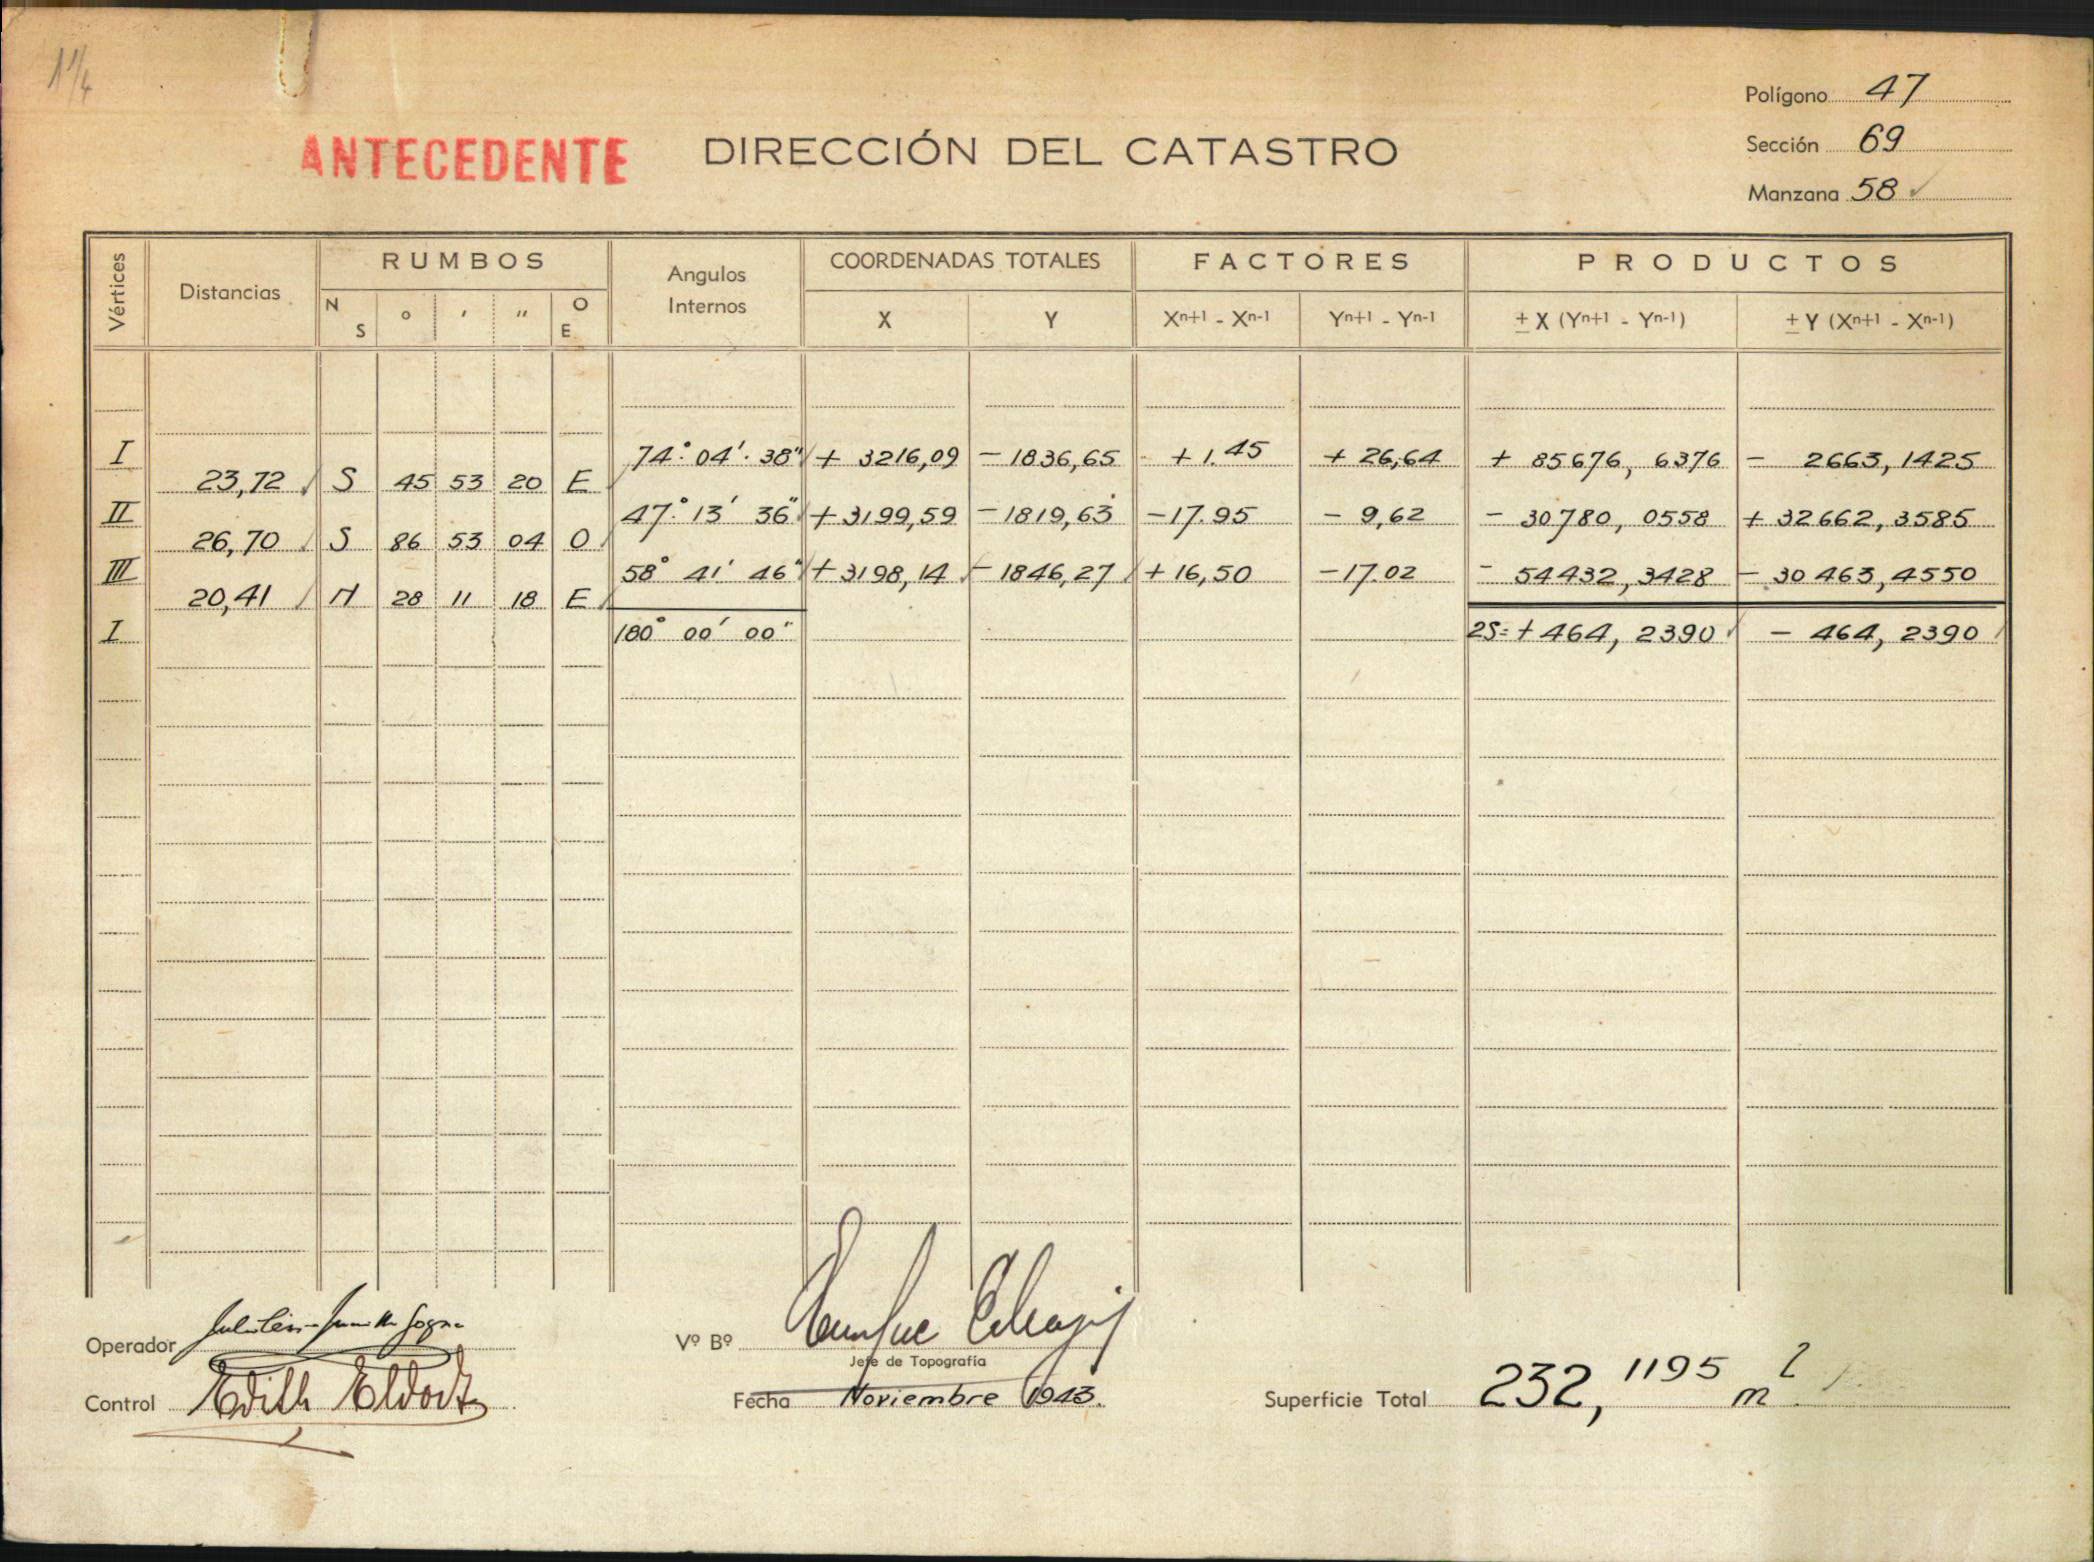 1 1/4
Polígono 47
ANTECEDENTE DIRECCIÓN DEL CATASTRO
Sección 69
Manzana 58
Vértices Distancias RUMBOS Angulos Internos COORDENADAS TOTALES FACTORES PRODUCTOS
N S ° ' " O E X Y Xn+1 - Xn-1 Yn+1 - Yn-1 ± X (Yn+1 - Yn-1) ± Y (Xn+1 - Xn-1)
I 74° 04' 38" + 3216,09 - 1836,65 + 1.45 + 26,64 + 85676, 6376 - 2663, 1425
23,72 S 45 53 20 E
II 47° 13' 36" + 3199,59 - 1819,63 - 17.95 - 9,62 - 30780, 0558 + 32662, 3585
26,70 S 86 53 04 O
III 58° 41' 46" + 3198,14 - 1846,27 + 16,50 - 17.02 - 54432, 3428 - 30463, 4550
20,41 N 28 11 18 E
I 180° 00' 00" 2S= + 464, 2390 - 464, 2390
Operador
Vº Bº Enrique
Jefe de Topografía
Control Edith
Fecha Noviembre 1943.
Superficie Total 232, 1195 m2